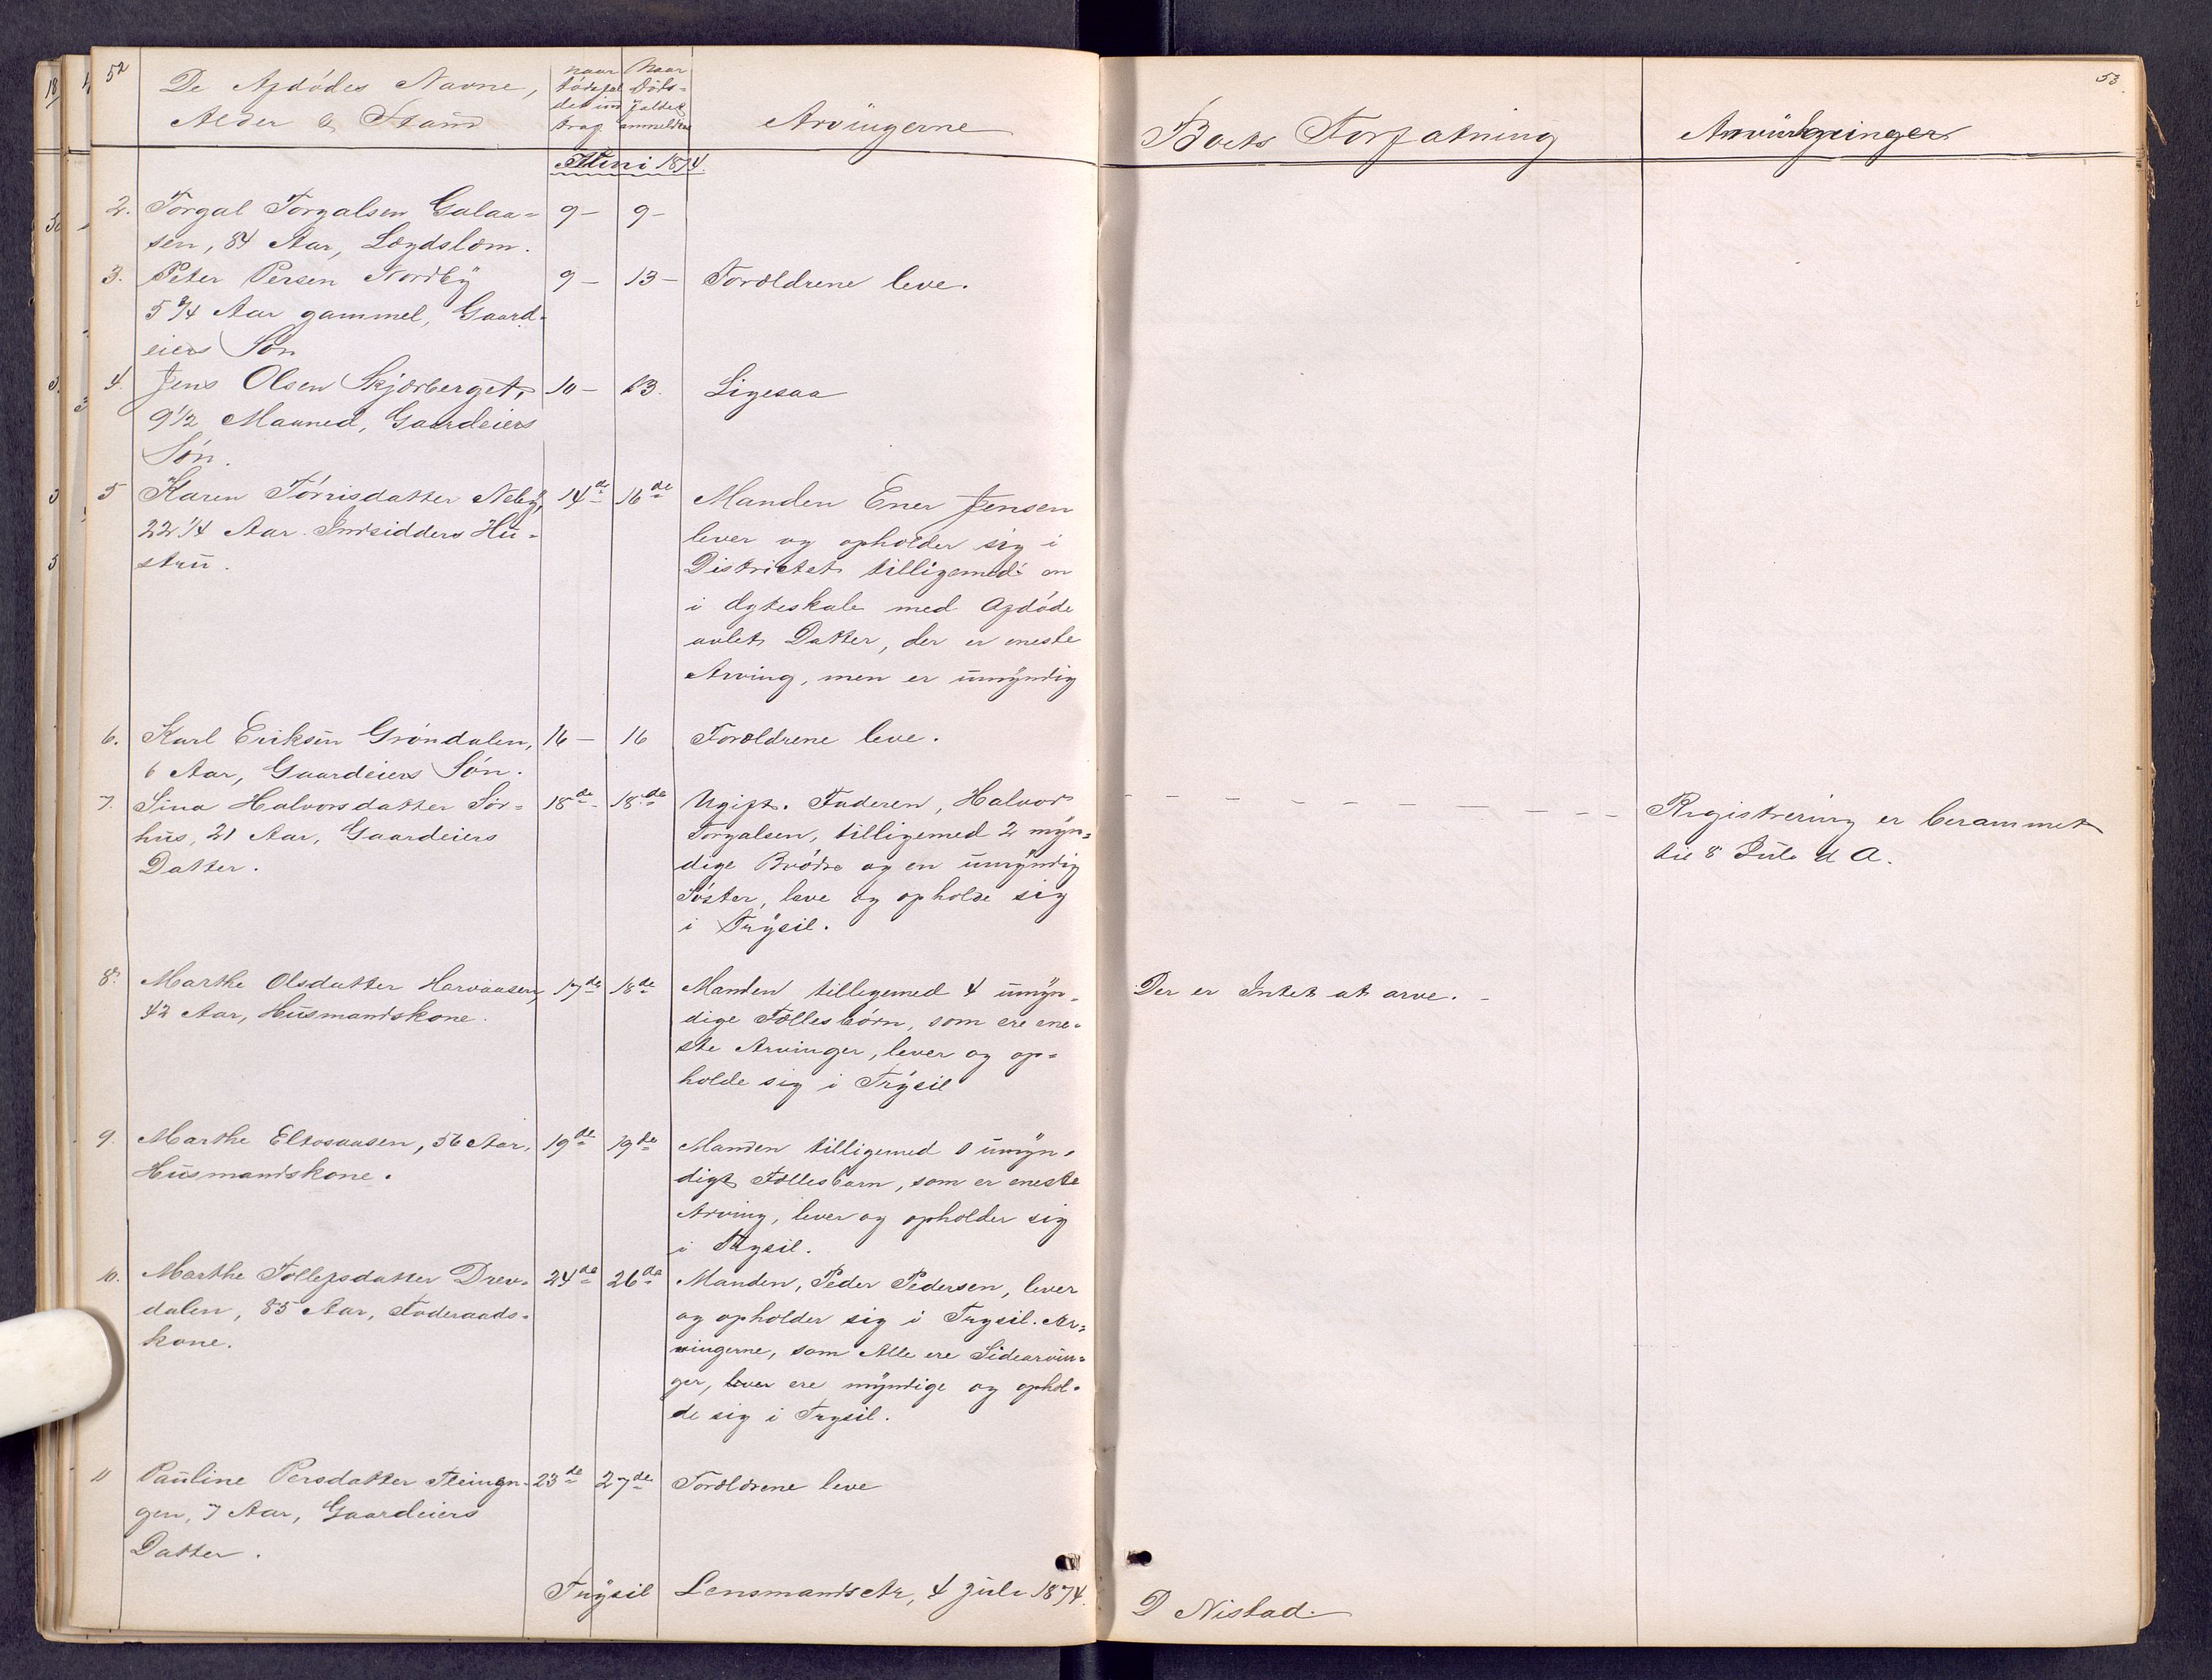 52
De Afdødes Navne,
Alder & Stand
Naar
dødsfal
det ind
traf
Naar
døds-
faldet
anmeldtes
Arvingerne
Juni 1874.
2. Torgal Torgalsen Galaa-
sen, 84 Aar, Lægdslem.
9 -
9 -
3. Peter Persen Nordby
5 3/4 Aar gammel, Gaard-
eiers Søn
9 -
13 -
Forældrene leve.
4. Jens Olsen Skjærberget,
9 1/2 Maaned, Gaardeiers
Søn.
10 -
13.
Ligesaa
5 Karen Tørrisdatter Neby,
22 1/4 Aar. Indsidders Hu-
stru.
14de
16de
Manden Ener Jensen
lever og opholder sig i
Districtet tilligemed en
i Ægteskab med Afdøde
avlet Datter, der er eneste
Arving, men er umyndig
6. Karl Eriksen Grøndalen,
6 Aar, Gaardeiers Søn.
16 -
16
Forældrene leve.
7. Sina Halvorsdatter Sør-
hus, 21 Aar, Gaardeiers
Datter.
18de -
18de
Ugift. Faderen, Halvor
Torgalsen, tilligemed 2 myn-
dige Brødre og en umyndig
Søster, leve og opholde sig
i Trysil.
8. Marthe Olsdatter Harvaasen,
42 Aar, Husmandskone.
17de
18de
Manden tilligemed 4 umyn-
dige Fællesbørn, som ere ene-
ste Arvinger, lever og op-
holde sig i Trysil
9. Marthe Eltosaasen, 56 Aar,
Husmandskone.
19de
19de
Manden tilligemed 1 umyn-
digt Fællesbarn, som er eneste
Arving, lever og opholder sig
i Trysil.
10. Marthe Tollefsdatter Drev-
dalen, 85 Aar, Foderaads-
kone.
24de
26de
Manden, Peder Pedersen, lever
og opholder sig i Trysil. Ar-
vingerne, som Alle ere Sidearvin-
ger, lever ere myndige og ophol-
de sig i Trysil.
11 Pauline Persdatter
gen, 7 Aar, Gaardeiers
Datter.
23de
27de
Forældrene leve
Trysil Lensmandsetr, 4 Juli 1874.
53.
Boets Forfatning
Anmærkninger
Registrering er berammet
til 8 Juli d A.
Der er Intet at arve. -
D Nistad.